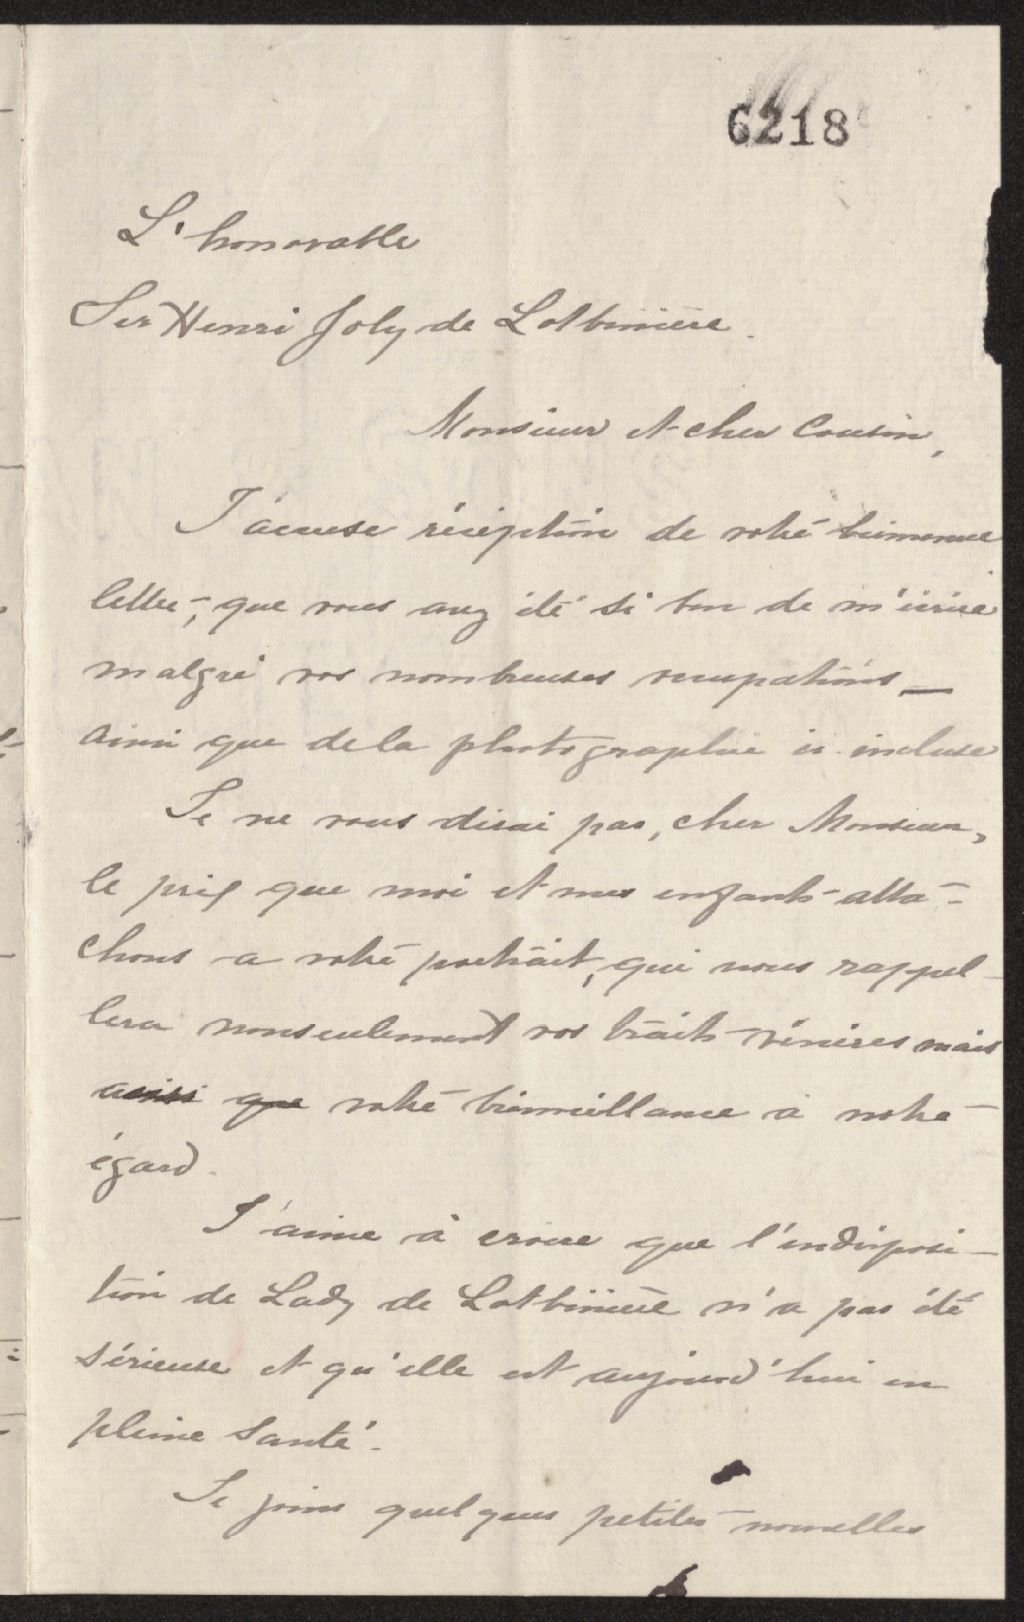 6218
L'honorable
Sir Henri Joly de Lotbinière.
Monsieur et cher Cousin,
J'accuse réception de votre bienvenue
lettre, que vous avez été si bon de m'écrire
malgré vos nombreuses occupations —
ainsi que de la photographie ci-incluse
Je ne vous dirai pas, cher Monsieur,
le prix que moi et mes enfants atta-
chons a votre portrait, qui nous rappel-
lera nonseulement vos traits vénérés mais
aussi que votre bienveillance à notre
égard.
J'aime à croire que l'indisposi-
tion de Lady de Lotbinière n'a pas été
sérieuse et qu'elle est aujourd'hui en
pleine santé.
Je joins quelques petites nouvelles